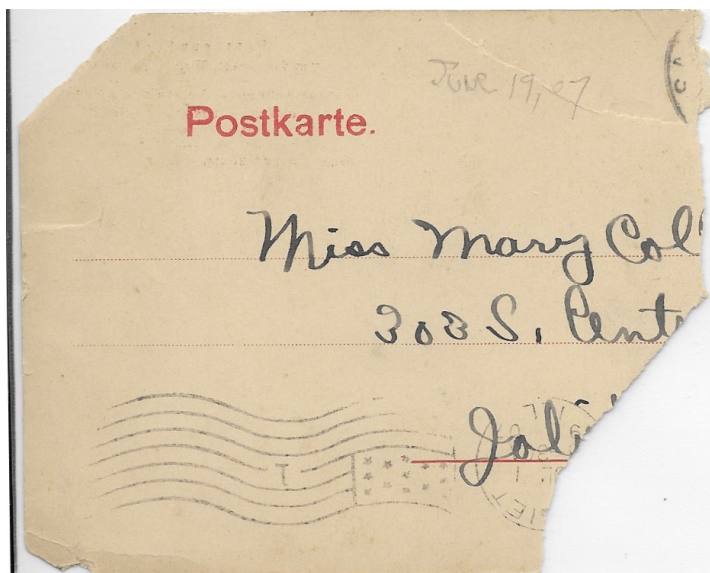 June 19, 07
Postkarte.
Miss Mary Col
303 S. Cent
Joli
1
IET